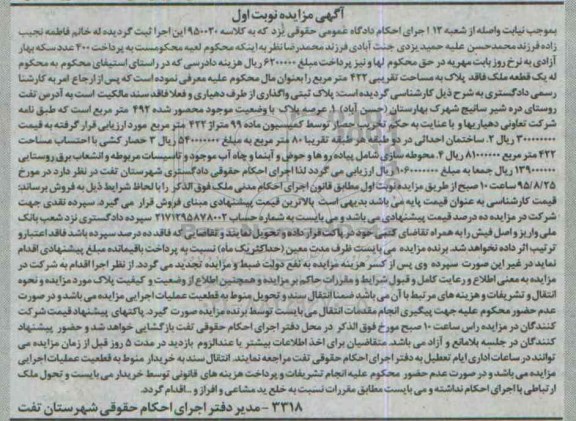 آگهی مزایده نوبت اول
بموجب نیابت واصله از شعبه ۱۲ اجرای احکام دادگاه عمومی حقوقی یزد که به کلاسه ۹۵۰۰۲۰ این اجرا ثبت گردیده له خانم فاطمه نجیب
زاده فرزند محمدحسن علیه حمید یزدی جنت آبادی فرزند محمدرضا نظر به اینکه محکوم لعیه محکومست به پرداخت ۴۰۰ عدد سکه بهار
آزادی به نرخ روز بابت مهریه در حق محکوم لها و نیز پرداخت مبلغ ۶۲۰۰۰۰۰ ریال هزینه دادرسی که در راستای استیفای محکوم به محکوم
له یک قطعه ملک فاقد پلاک به مساحت تقریبی ۴۲۲ متر مربع را بعنوان مال محکوم علیه معرفی نموده است که پس از ارجاع امر به کارشنا
رسمی دادگستری به شرح ذیل کارشناسی گردیده است: پلاک ثبتی واگذاری از طرف دهیاری و فعلا فاقد سند مالکیت است به آدرس تفت
روستای دره شیر سانیج شهرک بهارستان (حسن آباد) ۱. عرصه پلاک با وضعیت موجود محصور شده ۴۹۲ متر مربع است که طبق نامه
شرکت تعاونی دهیاریها و با عنایت به حکم تخریب حصار توسط کمیسیون ماده ۹۹ متراژ ۴۲۲ متر مربع مورد ارزیابی قرار گرفته به قیمت
۳۰۰۰۰۰۰۰۰ ریال ۲. ساختمان احداثی در دو طبقه هر طبقه تقریبا ۸۰ متر مربع به مبلغ ۵۴۰۰۰۰۰۰۰ ریال ۳. حصار کشی با احتساب مساحت
۴۲۲ متر مربع ۸۱۰۰۰۰۰۰ ریال ۴. محوطه سازی شامل پیاده رو ها و حوض و آبنما و چاه آب موجود و تاسیسات مربوطه و انشعاب برق روستایی
۱۳۹۰۰۰۰۰۰ ریال جمعا به مبلغ ۱۰۶۰۰۰۰۰۰۰ ریال ارزیابی می گردد لذا اجرای احکام حقوقی دادگستری شهرستان تفت در نظر دارد در مورخ
۹۵/۸/۲۵ ساعت ۱۰ صبح از طریق مزایده نوبت اول مطابق قانون اجرای احکام مدنی ملک فوق الذکر را با لحاظ شرایط ذیل به فروش برساند:
قیمت کارشناسی به عنوان قیمت پایه می باشد بدیهی است بالاترین قیمت پیشنهادی مبنای فروش قرار می گیرد. سپرده نقدی جهت
شرکت در مزایده ده درصد قیمت پیشنهادی می باشد و می بایست به شماره حساب ۲۱۷۱۲۹۵۸۷۸۰۰۲ سپرده دادگستری نزد شعب بانک
ملی واریز و اصل فیش را به همراه تقاضای کتبی خود در پاکت قرار داده و تحویل نمایند و تقاضایی که فاقد ده درصد سپرده باشد فاقد اعتبار و
ترتیب اثر داده نخواهد شد. برنده مزایده می بایست ظرف مدت معین (حداکثر یک ماه) نسبت به پرداخت باقیمانده مبلغ پیشنهادی اقدام
نماید در غیر این صورت سپرده وی پس از کسر هزینه مزایده به نفع دولت ضبط و مزایده تجدید می گردد. از نظر اجرا اقدام به شرکت در
مزایده به معنی اطلاع و رعایت کامل و قبول شرایط و مقررات حاکم بر مزایده و همچنین اطلاع از وضعیت و کیفیت پلاک مورد مزایده و نحوه
انتقال و تشریفات و هزینه های مرتبط با آن می باشد ضمنا انتقال سند و تحویل منوط به قطعیت عملیات اجرایی مزایده می باشد و در صورت
عدم حضور محکوم علیه جهت پیگیری انجام مقدمات انتقال می بایست توسط برنده مزایده صورت گیرد. پاکتهای پیشنهاد قیمت شرکت
کنندگان در مزایده راس ساعت ۱۰ صبح مورخ فوق الذکر در محل دفتر اجرای احکام حقوقی تفت بازگشایی خواهد شد و حضور پیشنهاد
کنندگان در جلسه بلامانع و آزاد می باشد. متقاضیان برای اخذ اطلاعات بیشتر یا عندالزوم بازدید در مدت ۵ روز قبل از زمان مزایده می
توانند در ساعات اداری ایام تعطیل به دفتر اجرای احکام حقوقی تفت مراجعه نمایند. انتقال سند به خریدار منوط به قطعیت عملیات اجرایی
مزایده می باشد و در صورت عدم حضور محکوم علیه انجام تشریفات و پرداخت هزینه های قانونی توسط خریدار می بایست و تحویل ملک
ارتباطی با اجرای احکام نداشته و می بایست مطابق مقررات نسبت به خلع ید مشاعی و افراز و ... اقدام گردد.
۳۳۱۸ - مدیر دفتر اجرای احکام حقوقی شهرستان تفت